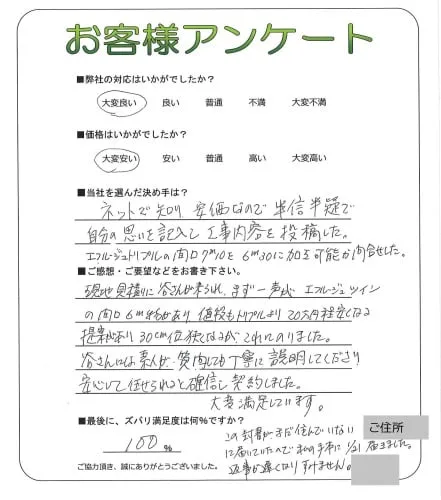 お客様アンケート
■弊社の対応はいかがでしたか?
大変良い 良い 普通 不満 大変不満
■価格はいかがでしたか?
大変安い 安い 普通 高い 大変高い
■当社を選んだ決め手は?
ネットで知り 安価なので 半信半疑で
自分の思いを記入して工事内容を投稿した。
エフルージュトリプルの間口 を 6m30に加工可能か問合せした。
■ご感想・ご要望などをお書き下さい。
現地見積りに 谷さんが来られ、まず一声が エフルージュツイン
の間口6m があり 値段もトリプルより20万円程安くなる
提案があり 30cm位狭くなるがこれにのりました。
谷さんには素人が 質問しても丁寧に説明してくださり
安心して任せられると確信し契約しました。
大変満足しています。
■最後に、ズバリ満足度は何%ですか?
100%
ご協力頂き、誠にありがとうございました。
ご住所
この封書がまだ住んでいない
に届いていたので私の手本に 1/21 届きました。
返事が遅くなりすみません。